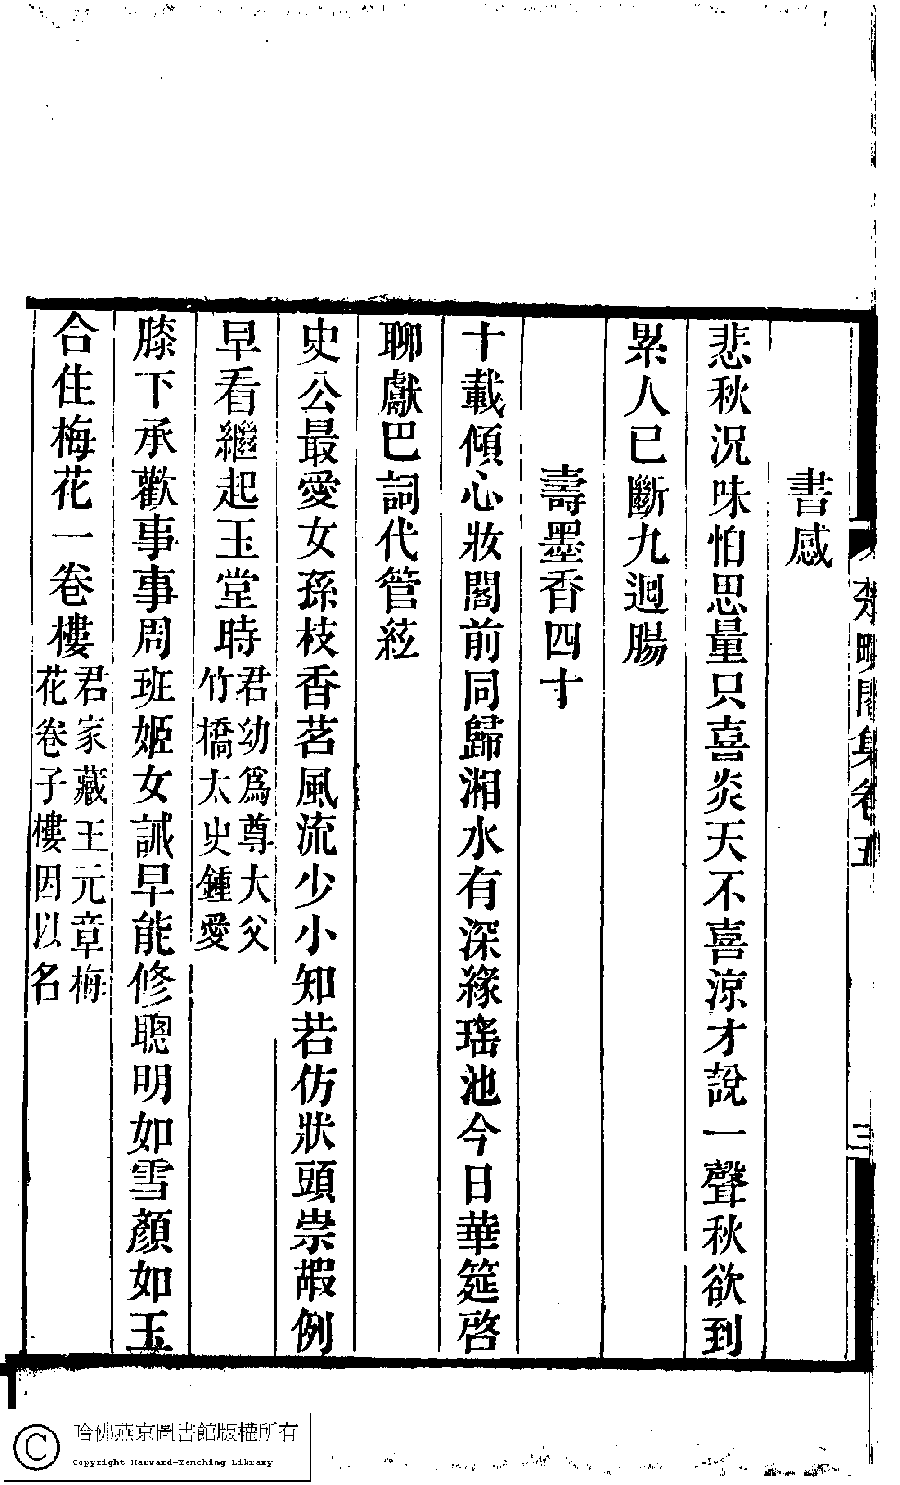 書感
悲秋況味怕思量只喜炎天不喜涼才說一聲秋欲到
累人已斷九迴腸
壽墨香四十
十載傾心妝閣前同歸湘水有深緣瑤池今日華筵啓
聊獻巴詞代管絃
史公最愛女孫枝香茗風流少小知若仿狀頭崇嘏例
早看繼起玉堂時君幼爲尊大父
竹橋太史鍾愛
膝下承歡事事周班姬女誡早能修聰明如雪顏如玉
合住梅花一卷樓君家藏王元章梅
花卷子樓因以名
集卷五
三
哈佛燕京圖書館版權所有
Copyright Harvard-Yenching Library